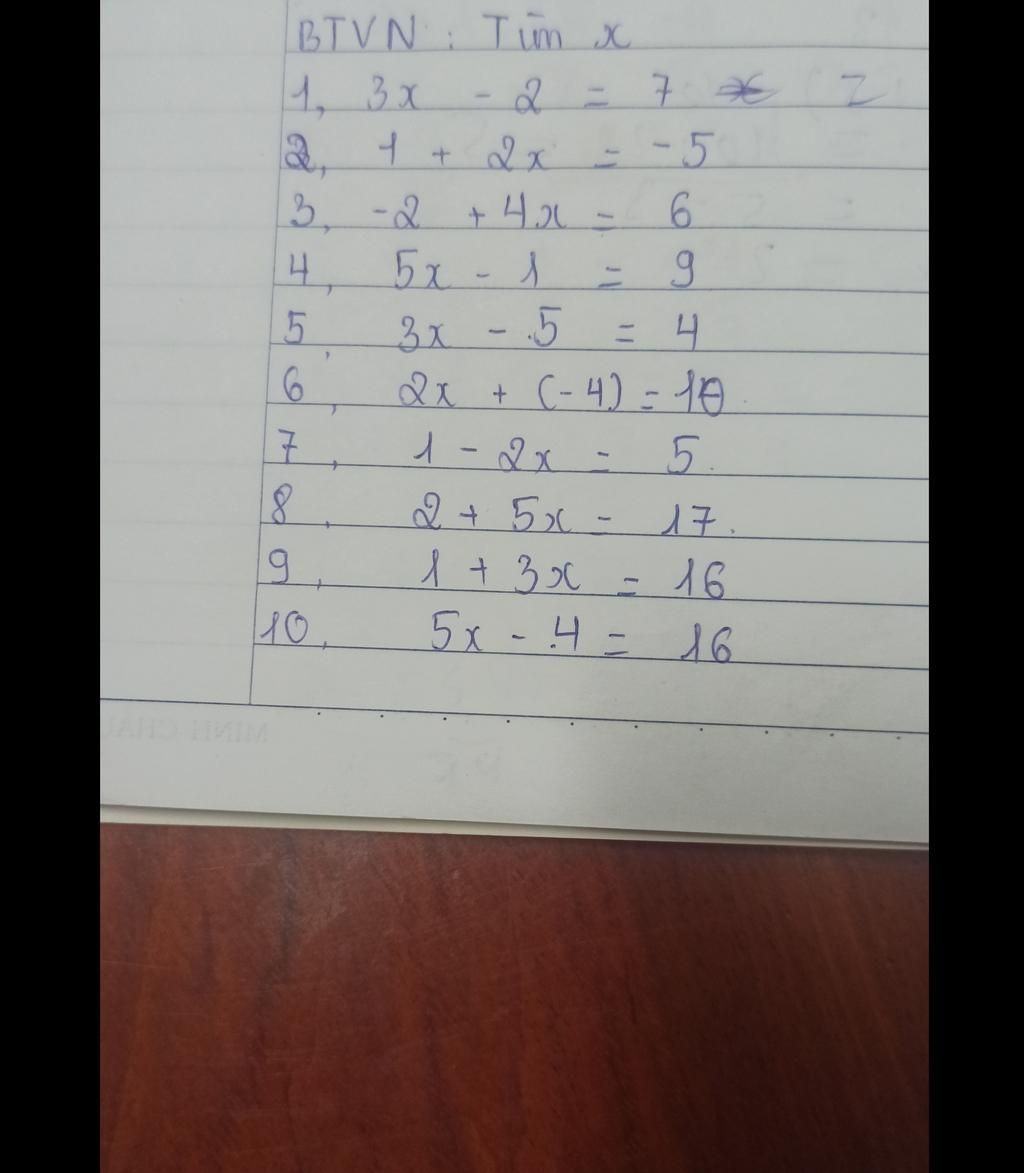 BTVN : Tìm x
1, 3x - 2 = 7
2, 1 + 2x = -5
3, -2 + 4x = 6
4, 5x - 1 = 9
5, 3x - 5 = 4
6, 2x + (-4) = 10
7, 1 - 2x = 5
8, 2 + 5x = 17.
9, 1 + 3x = 16
10, 5x - 4 = 16